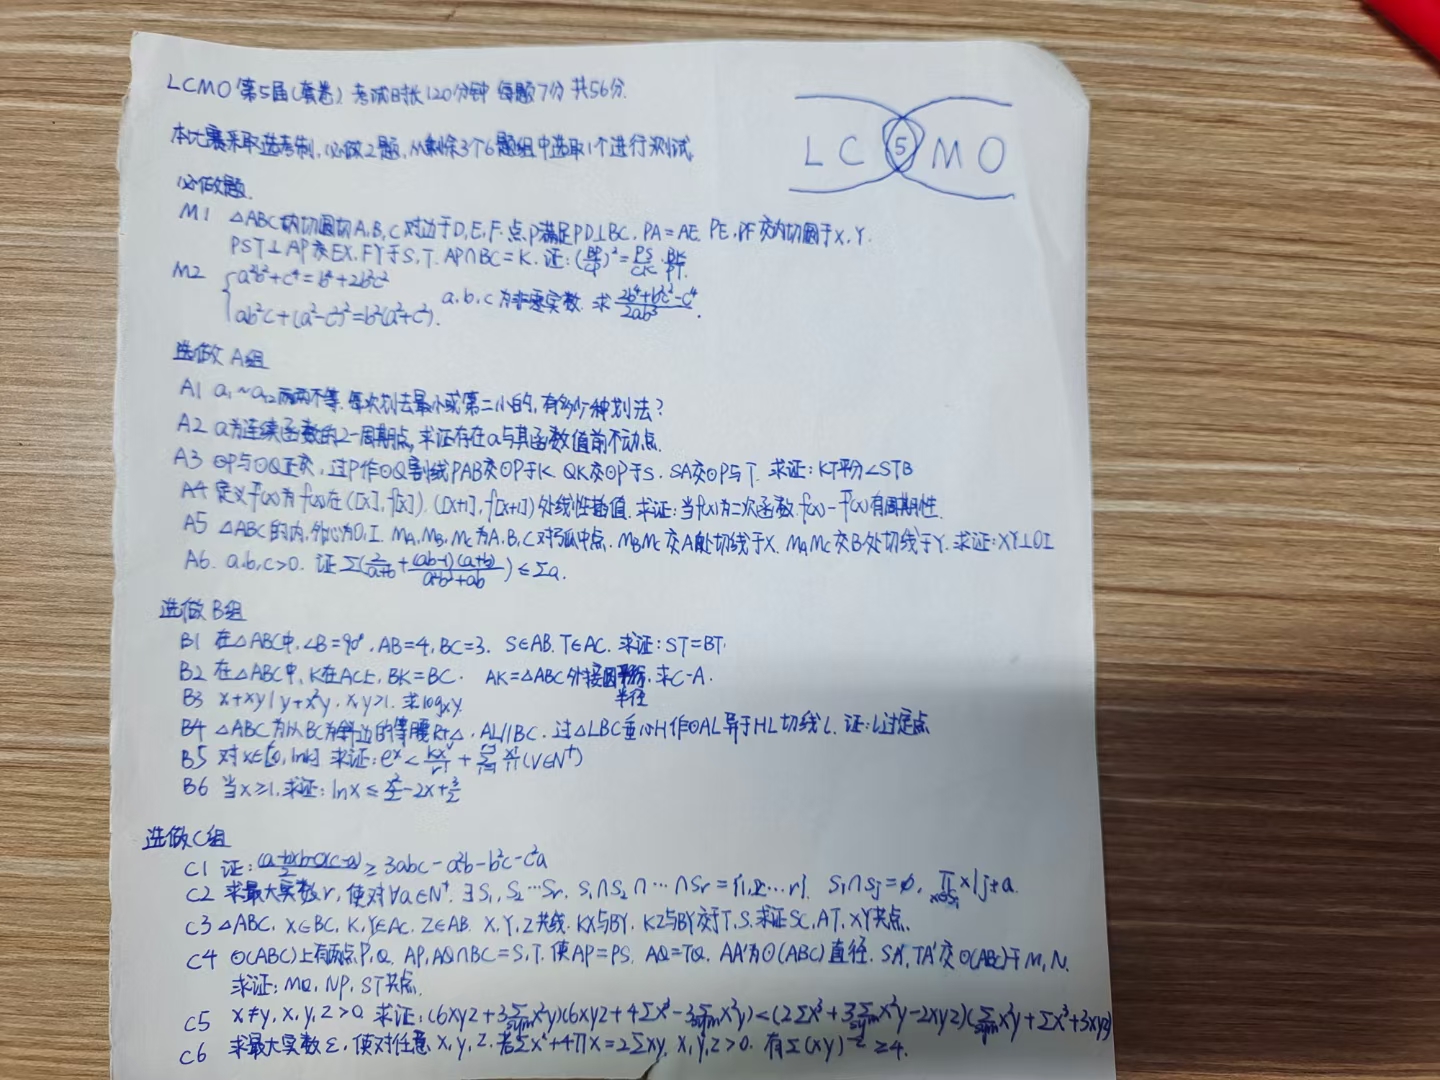 LCMO 第5届(套卷) 考试时长120分钟 每题7分 共56分.
LC⑤MO
本比赛采取选考制,必做2题,从剩余3个6题组中选取1个进行测试.
必做题.
M1 △ABC内切圆切A,B,C对边于D,E,F.点P满足PD⊥BC. PA=AE. PE,PF交内切圆于X,Y.
PST⊥AP交EX,FY于S,T. AP∩BC=K. 证:
M2 {a²b²+c⁴=b⁴+2b²c²
ab²c+(a²-c²)²=b²(a²+c²). a,b,c为非零实数. 求 (2b⁴+b²c²-c⁴)/(2ab³).
选做A组
A1 a₁~a₁₂两两不等.每次划去最小或第二小的,有多少种划法?
A2 a为连续函数的2-周期点,求证存在a与其函数值间不动点.
A3 ⊙P与⊙Q正交,过P作⊙Q割线PAB交⊙P于K. QK交⊙P于S. SA交⊙P与T. 求证:KT平分∠STB
A4 定义f̄(x)为f(x)在([x],f[x]),([x+1],f[x+1])处线性插值.求证:当f(x)为二次函数.f(x)-f̄(x)有周期性.
A5 △ABC的内,外心为O,I. MA,MB,MC为A,B,C对弧中点. MBMC交A处切线于X. MAMC交B处切线于Y.求证:XY⊥OI
A6. a,b,c>0. 证 Σ(2/(a+b)+(ab-1)(a+b)/(a²+b²+ab))≤Σa.
选做B组
B1 在△ABC中,∠B=90°,AB=4,BC=3. S∈AB.T∈AC. 求证:ST=BT.
B2 在△ABC中,K在AC上,BK=BC. AK=△ABC外接圆半径.求C-A.
B3 x+xy|y+x²y. x,y>1. 求logxy.
B4 △ABC为以BC为斜边的等腰Rt△. AL∥BC. 过△LBC垂心H作⊙AL异于HL切线l. 证:l过定点
B5 对x∈[0,lnk] 求证:
B6 当x≥1,求证:lnx≤x²/2-2x+3/2
选做C组
C1 证:(a-b)(b-c)(c-a)/2≥3abc-a²b-b²c-c²a
C2 求最大实数r,使对∀a∈N⁺,∃S₁,S₂…Sr, S₁∩S₂∩…∩Sr={1,2…r}. Si∩Sj=∅,
C3 △ABC. X∈BC, K,Y∈AC. Z∈AB. X,Y,Z共线. KX与BY, KZ与BY交于T,S.求证SC,AT,XY共点.
C4 ⊙(ABC)上有两点P,Q. AP,AQ∩BC=S,T.使AP=PS. AQ=TQ. AA'为⊙(ABC)直径. SA',TA'交⊙(ABC)于M,N.
求证:MQ,NP,ST共点.
C5 x≠y,x,y,z>0 求证:(6xyz+3∑sym x²y)(6xyz+4Σx³-3∑sym x²y)<(2Σx³+3∑sym x²y-2xyz)(∑sym x²y+Σx³+3xyz)
C6 求最大实数ε,使对任意x,y,z.若Σx²+4Πx=2Σxy, x,y,z>0. 有